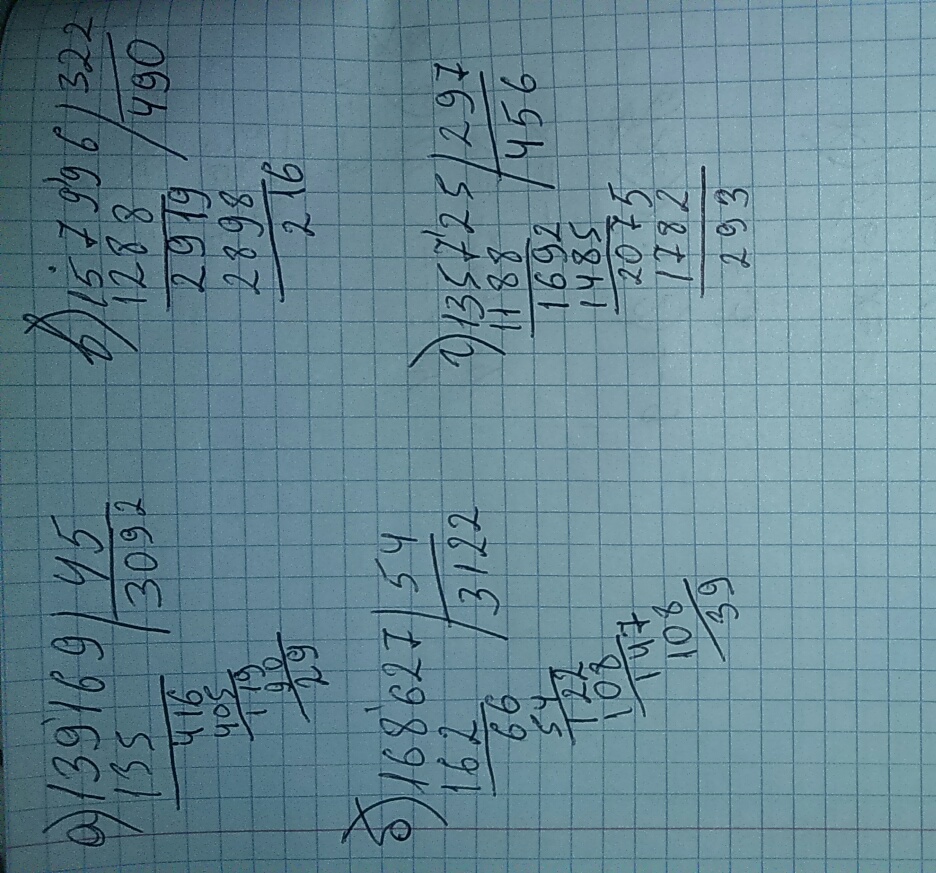 а) 139169 | 45
135 | 3092
416
405
119
90
29
б) 168627 | 54
162 | 3122
66
54
122
108
147
108
39
в) 157996 | 322
1288 | 490
2919
2898
216
г) 135725 | 297
1188 | 456
1692
1485
2075
1782
293